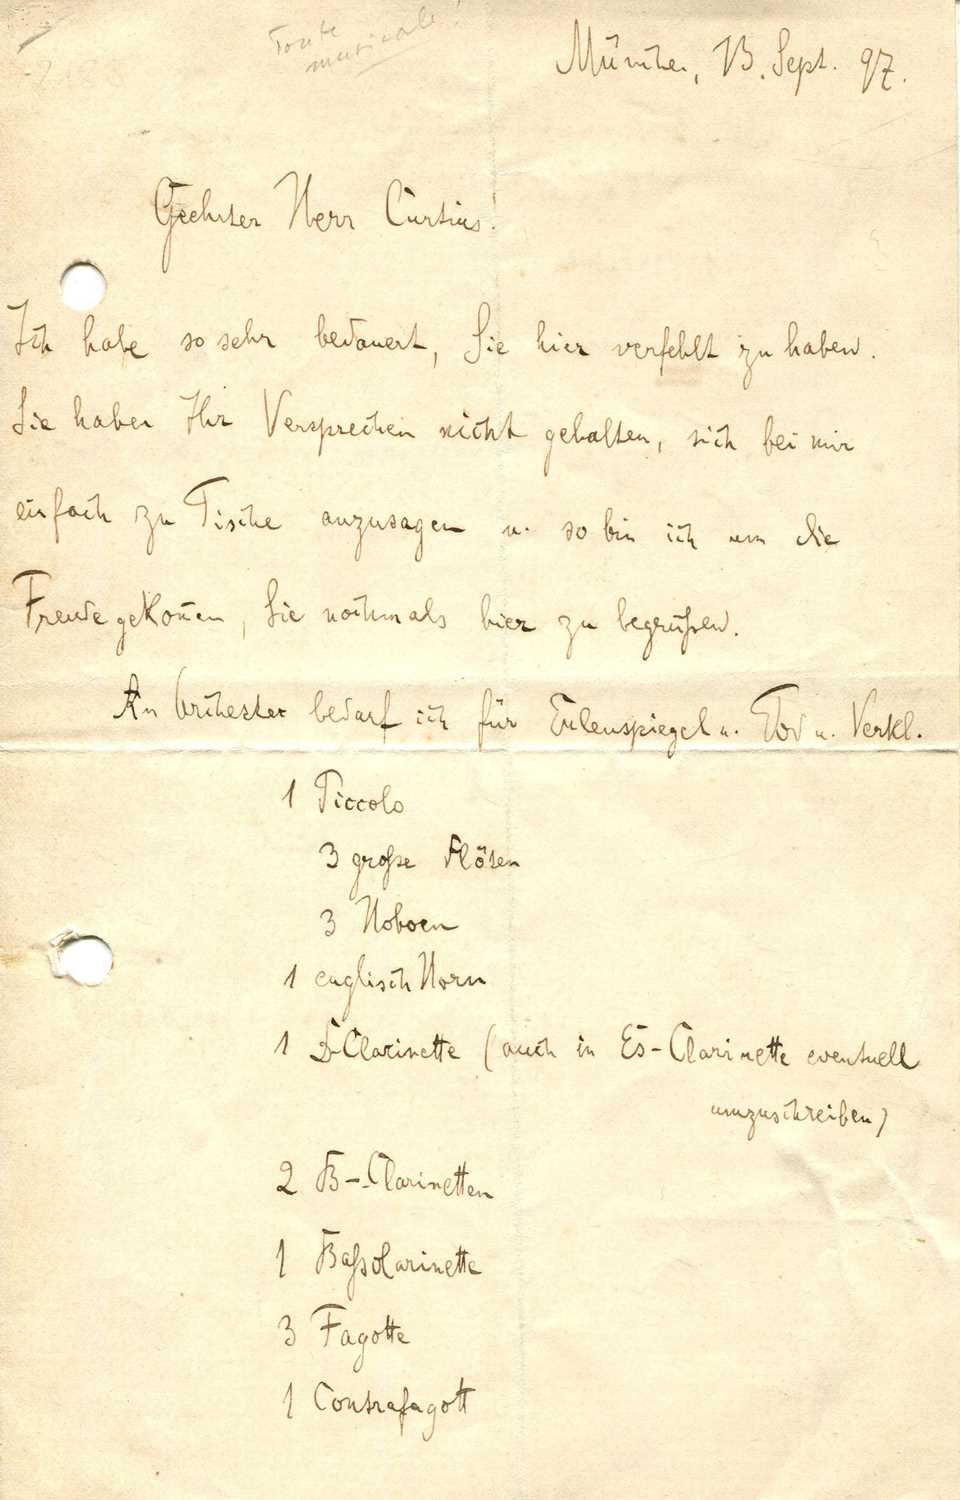 musicale!
München, 13. Sept. 97.
Geehrter Herr Curtius!
Ich habe so sehr bedauert, Sie hier verfehlt zu haben.
Sie haben Ihr Versprechen nicht gehalten, sich bei mir
einfach zu Tische anzusagen u. so bin ich um die
Freude gekom̄en, Sie nochmals hier zu begrüßen.
An Orchester bedarf ich für Eulenspiegel u. Tod u. Verkl.
1 Piccolo
3 große Flöten
3 Hoboen
1 englisch Horn
1 D-Clarinette (auch in Es-Clarinette eventuell
umzuschreiben)
2 B-Clarinetten
1 Baßclarinette
3 Fagotte
1 Contrafagott